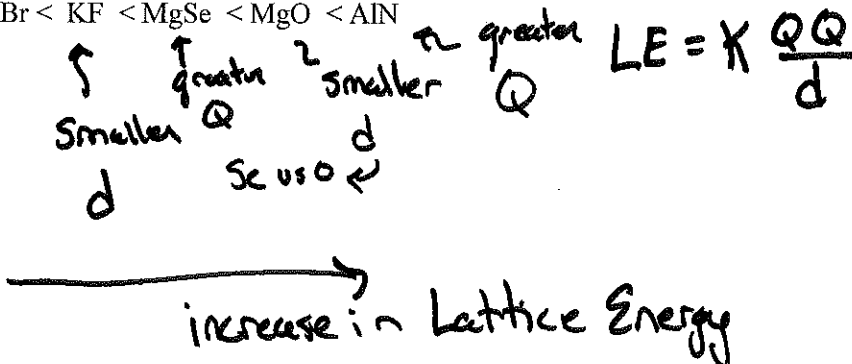 Br < KF < MgSe < MgO < AlN
smaller d
greater Q
smaller d
Se vs O
greater Q
LE = K QQ/d
increase in Lattice Energy